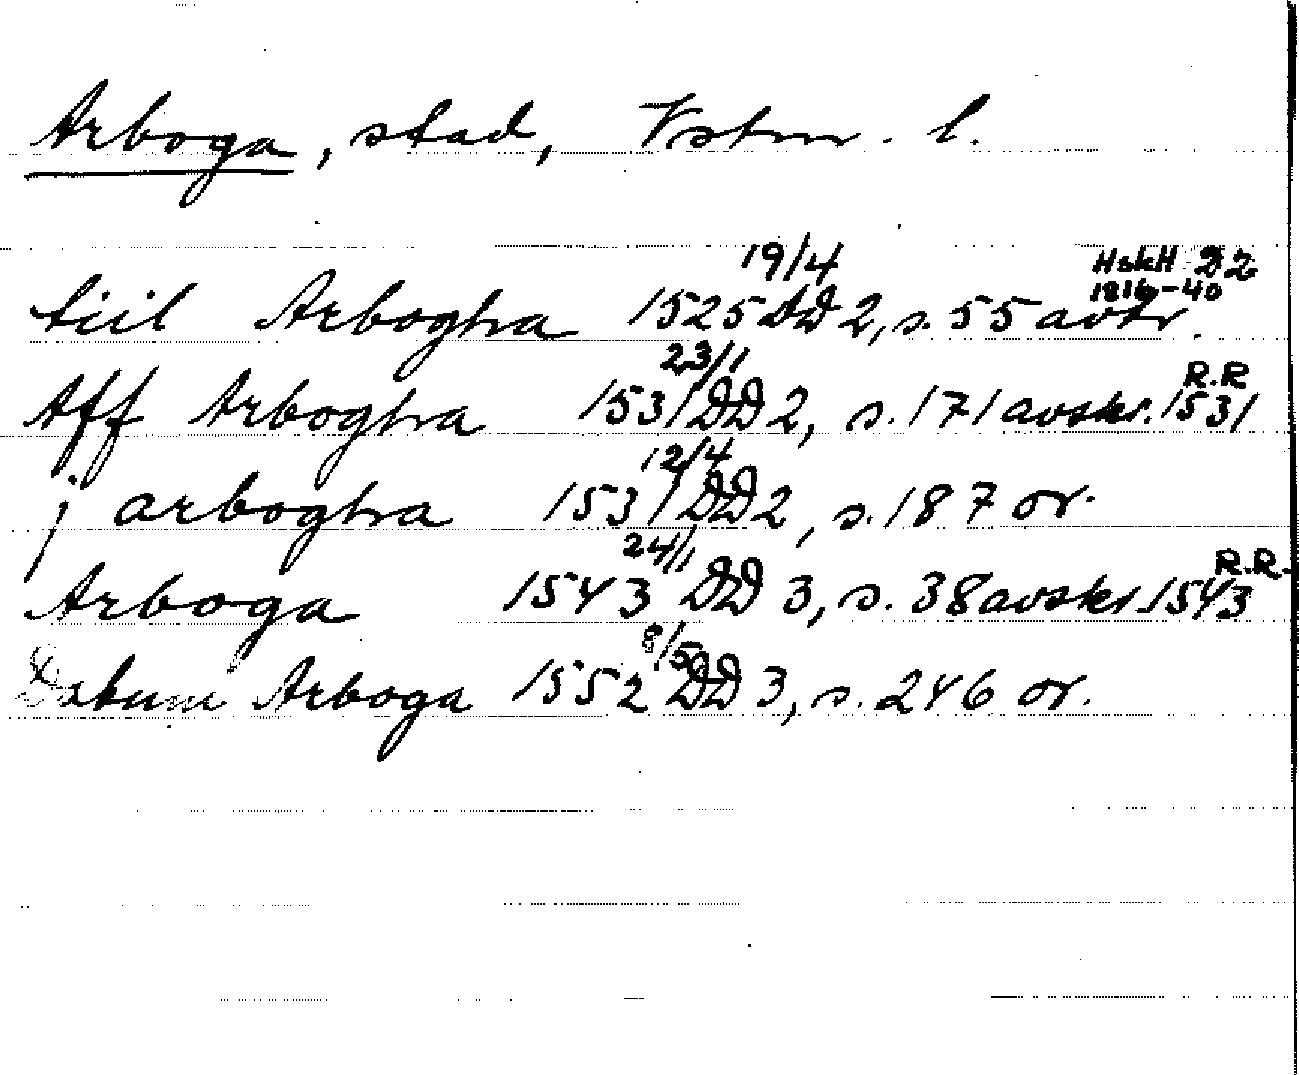 Arboga, stad, Vstm. l.
tiil Arboghra 1525 19/4 DD 2, s. 55 avtr. HskH D2 1816-40
Aff Arboghra 1531 23/1 DD 2, s. 171 avskr. R.R 1531
j arboghra 1531 12/4 DD 2, s. 187 or.
Arboga 1543 24/1 DD 3, s. 38 avskr. R.R. 1543
Datum Arboga 1552 8/5 DD 3, s. 246 or.